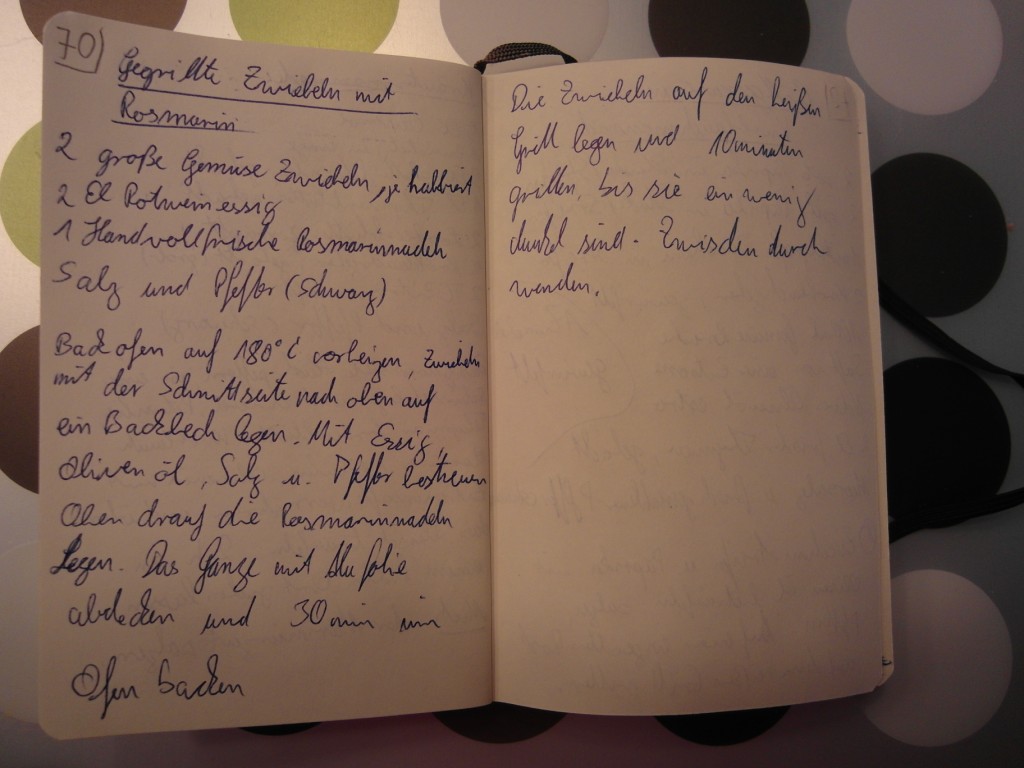 70
Gegrillte Zwiebeln mit
Rosmarin
2 große Gemüse Zwiebeln, je halbiert
2 El Rotweinessig
1 Handvoll frische Rosmarinnadeln
Salz und Pfeffer (Schwarz)
Backofen auf 180°C vorheizen, Zwiebeln
mit der Schnittseite nach oben auf
ein Backblech legen. Mit Essig,
Oliven öl, Salz u. Pfeffer bestreuen
Oben drauf die Rosmarinnadeln
Legen. Das Ganze mit Alu folie
abdecken und 30 min im
Ofen backen
Die Zwiebeln auf den heißen
Grill legen und 10 minuten
grillen, bis sie ein wenig
dunkel sind. Zwischen durch
wenden.